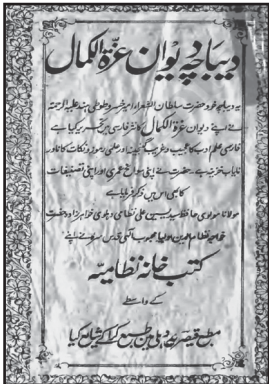 دیباچہ دیوان غرۃ الکمال
یہ دیباچہ خود حضرت سلطان الشعراء امیر خسرو طوطی ہند علیہ الرحمۃ
نے اپنے دیوان غرۃ الکمال کا نثر فارسی میں تحریر کیا ہے
فارسی علم ادب کا عجیب و غریب گنجینہ اور علمی رموز و نکات کا نادر و
نایاب خزینہ ہے۔ حضرت نے اپنی سوانح عمری اور اپنی تصنیفات
کا بھی اس میں ذکر فرمایا ہے
مولانا مولوی حافظ سید یٰسین علی نظامی دہلوی خواہر زادہ حضرت
خواجہ نظام الدین اولیا محبوب الٰہی قدس سرہ نے اپنے
کتب خانہ نظامیہ
کے واسطے
مطبع قیصریہ دہلی میں طبع کرا کے شائع کیا